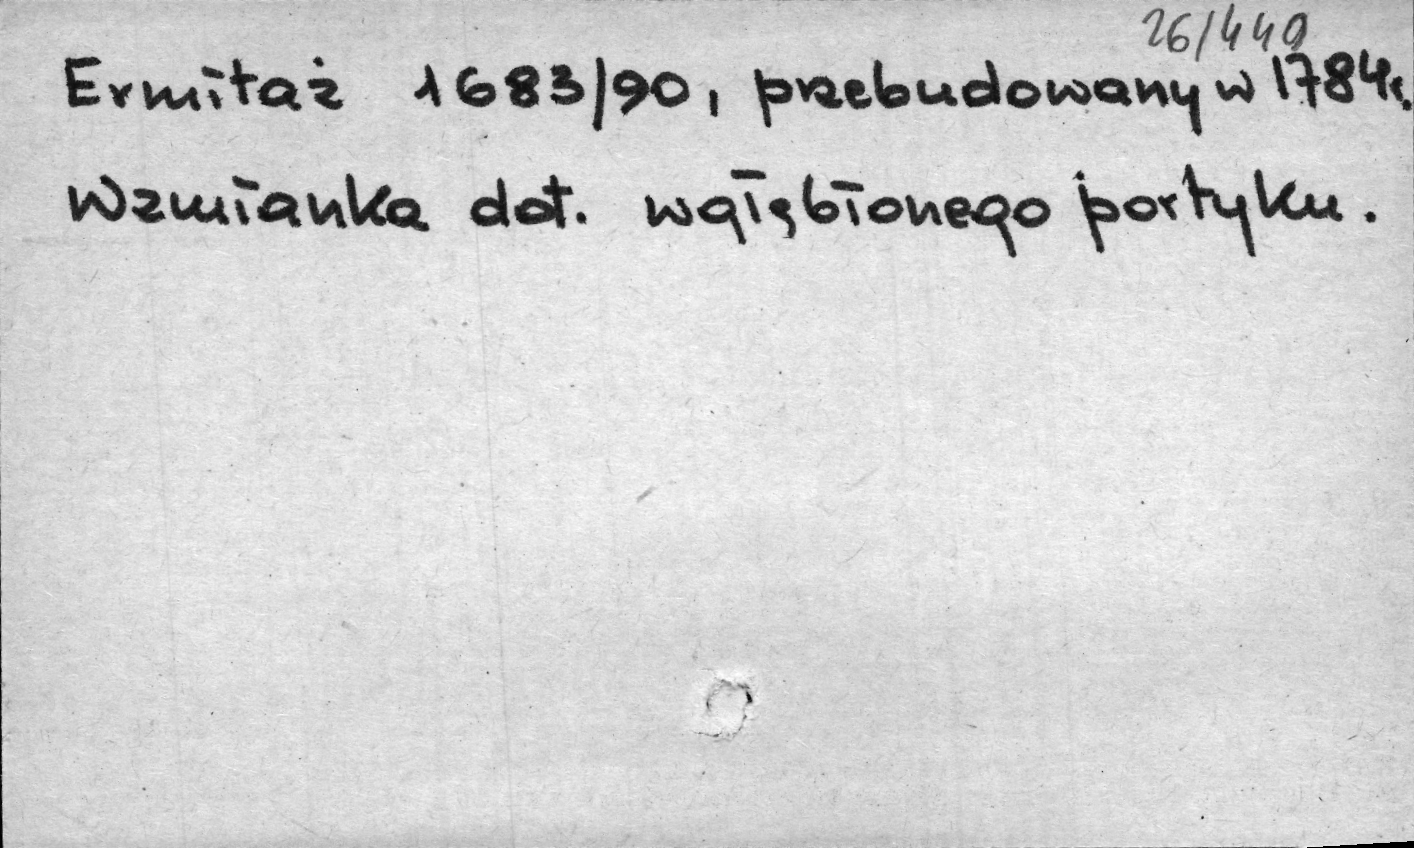 26/449
Ermitaż 1683/90, przebudowany w 1784r.
Wzmianka dot. wgłębionego portyku.